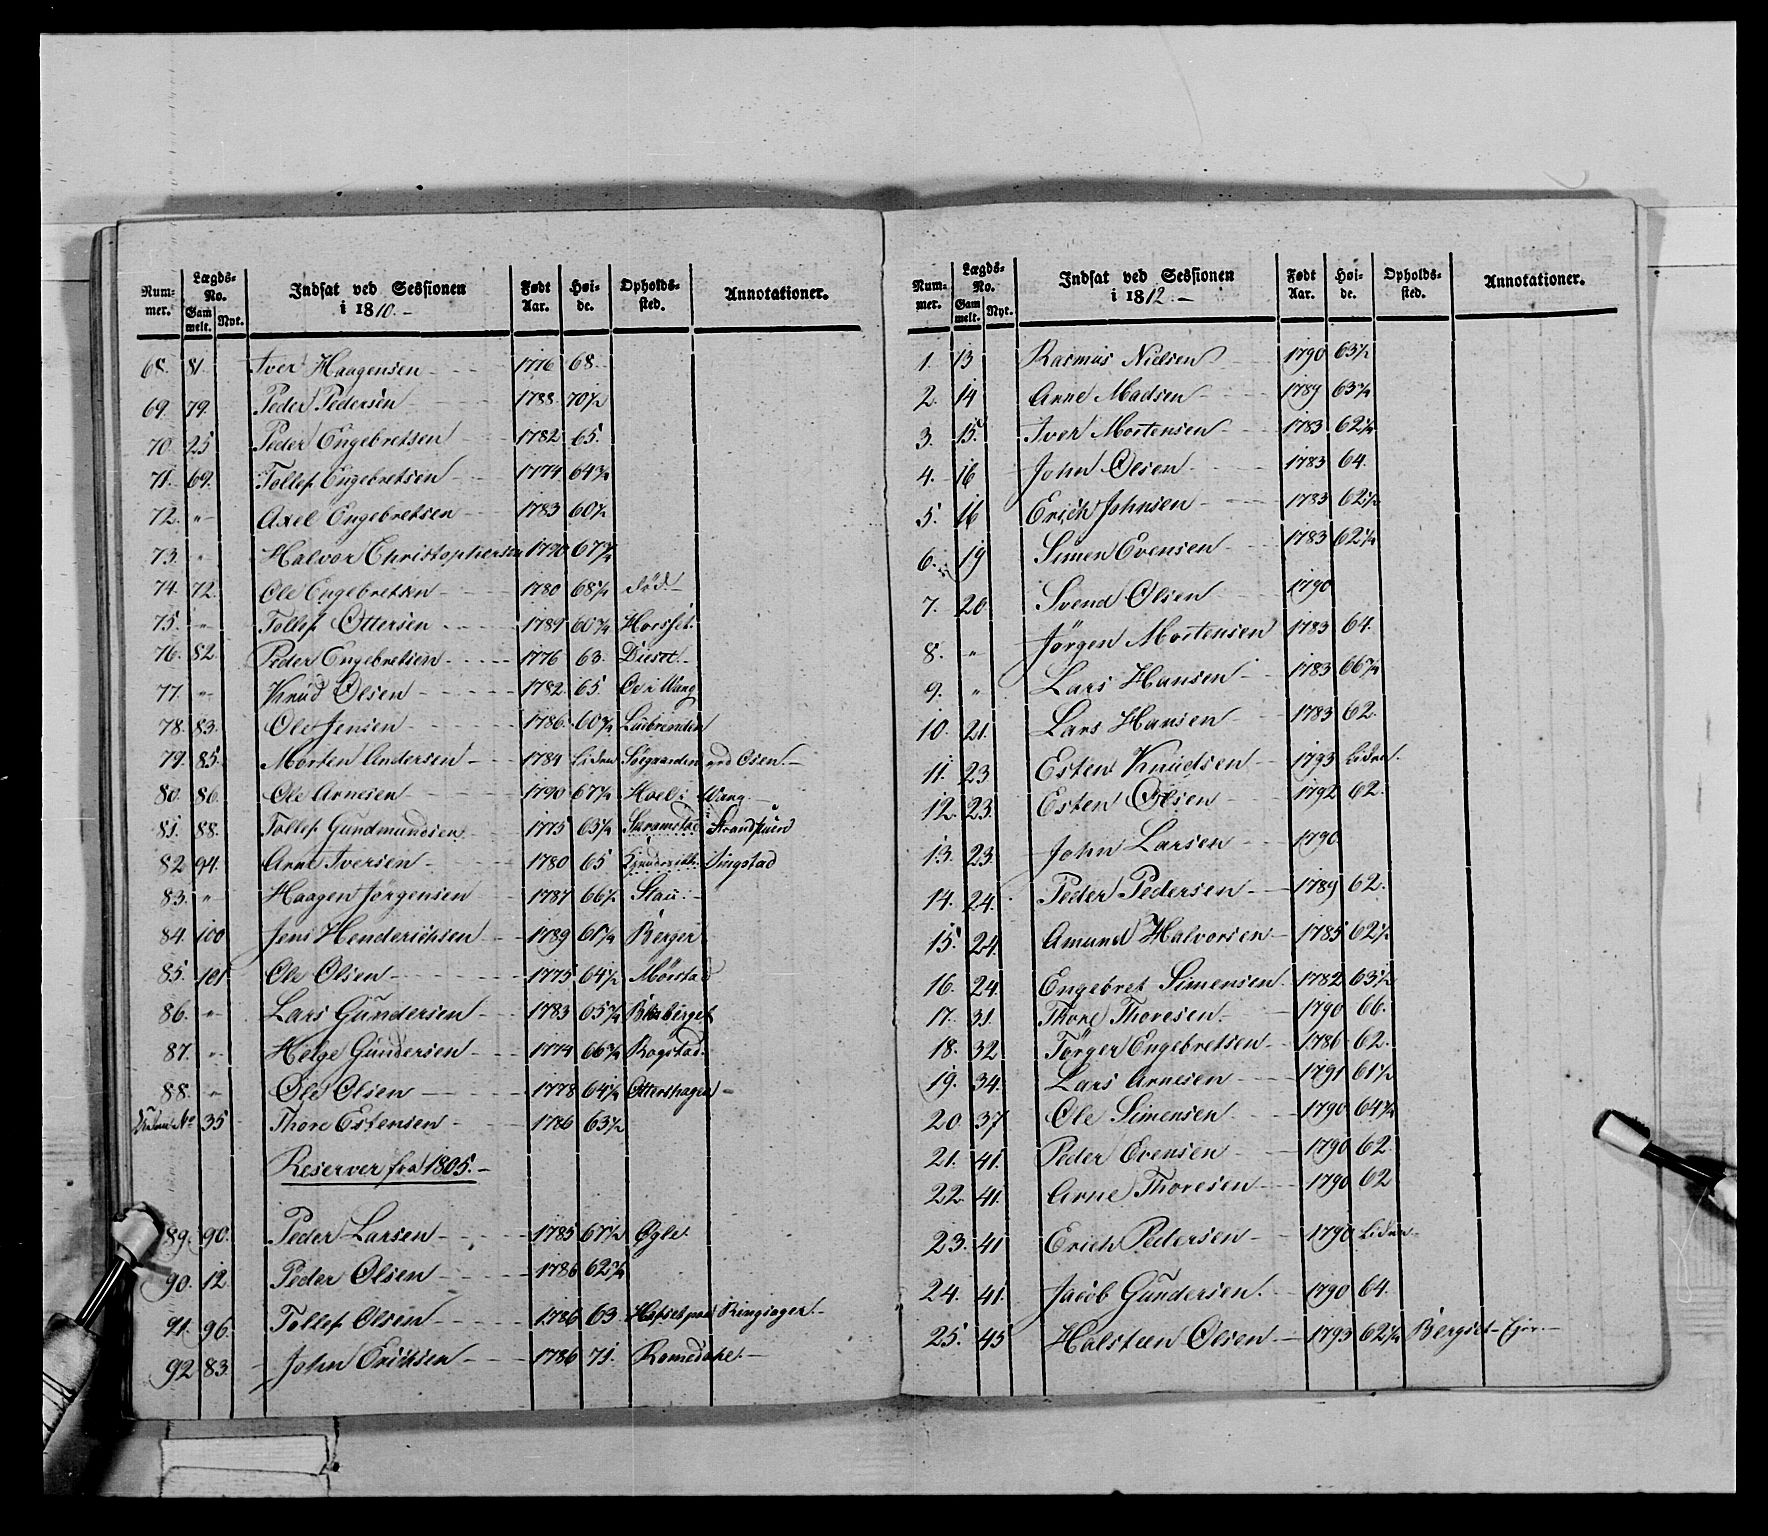 Num-mer. Lægds-No. Gam melt. Nyt. Indsat ved Sessionen i 1810.- Født Aar. Høi-de. Opholds-sted. Annotationer.
68. 81. Iver Haagensen - 1776 68.
69. 79. Peder Pedersen 1788. 70½
70. 25 Peder Engebretsen 1782 65.
71. 69. Tollef Engebretsen 1774 64¾
72. " Axel Engebretsen 1783 60½
73. " Halvor Christophersen 1790 67¾
74. 72. Ole Engebretsen 1780 68¼ död.-
75. " Tollef Ottersen 1789 60¾
76. 82. Peder Engebretsen 1776 63.
77. " Knud Olsen 1782 65. Wang
78. 83. Ole Jensen 1786. 60¾
79. 85. Morten Andersen 1784 Liden Osen.-
80. 86. Ole Arnesen 1790 67¼ Hoel i Wang
81. 88. Tollef Gundmundsen 1775 63¼ Skramstad
82 94. Arne Iversen 1780 65 Singstad
83. " Haagen Jorgensen 1787 66½
84. 100 Jens Henderichsen 1789 61¼ Berger
85. 101. Ole Olsen 1775 64½ Mörstad
86. " Lars Gundersen 1783 65¾
87. " Helge Gundersen 1774 66¾ Rogstad
88. " Ole Olsen 1778 64¼
Uden No 35 Thore Estensen 1786 63½
Reserver fra 1805.-
89. 90. Peder Larsen 1785 67½ Ogle.
90. 12. Peder Olsen 1786 62¾
91. 96. Tollef Olsen 1786 63 Ringsager.-
92 83. John Erichsen 1786 71. Romedahl.-
Num-mer. Lægds-No. Gam melt. Nyt. Indsat ved Sessionen i 1812.- Født Aar. Høi-de. Opholds-sted. Annotationer.
1. 13 Rasmus Nielsen 1790 63½
2. 14 Arne Madsen 1789 63¾
3. 15. Iver Mortensen 1783 62¼
4. 16 John Olsen 1783 64.
5. 16 Erich Johnsen 1783 62½
6. 19 Simen Evensen 1783 62¼
7. 20 Svend Olsen 1790
8. " Jörgen Mortensen 1783 64.
9. " Lars Hansen 1783 66¾
10. 21. Lars Hansen 1783 62.
11. 23 Esten Knudsen 1793 Liden.
12. 23. Esten Olsen 1792 62.
13. 23. John Larsen 1790.
14. 24. Peder Pedersen 1789 62.
15. 24. Amund Halvorsen 1785 62½
16. 24. Engebret Simensen. 1782 63½
17. 31. Thore Thoresen 1790 66.
18. 32 Törger Engebretsen 1786 62.
19. 34. Lars Arnesen 1791 61½
20. 37 Ole Simensen 1790 64¾
21. 41. Peder Evensen 1790 62.
22. 41. Arne Thoresen 1790 62
23. 41 Erich Pedersen 1790 Liden
24. 41. Jacob Gundersen. 1790 64.
25. 45 Halsteen Olsen 1793 62¼ Bergset